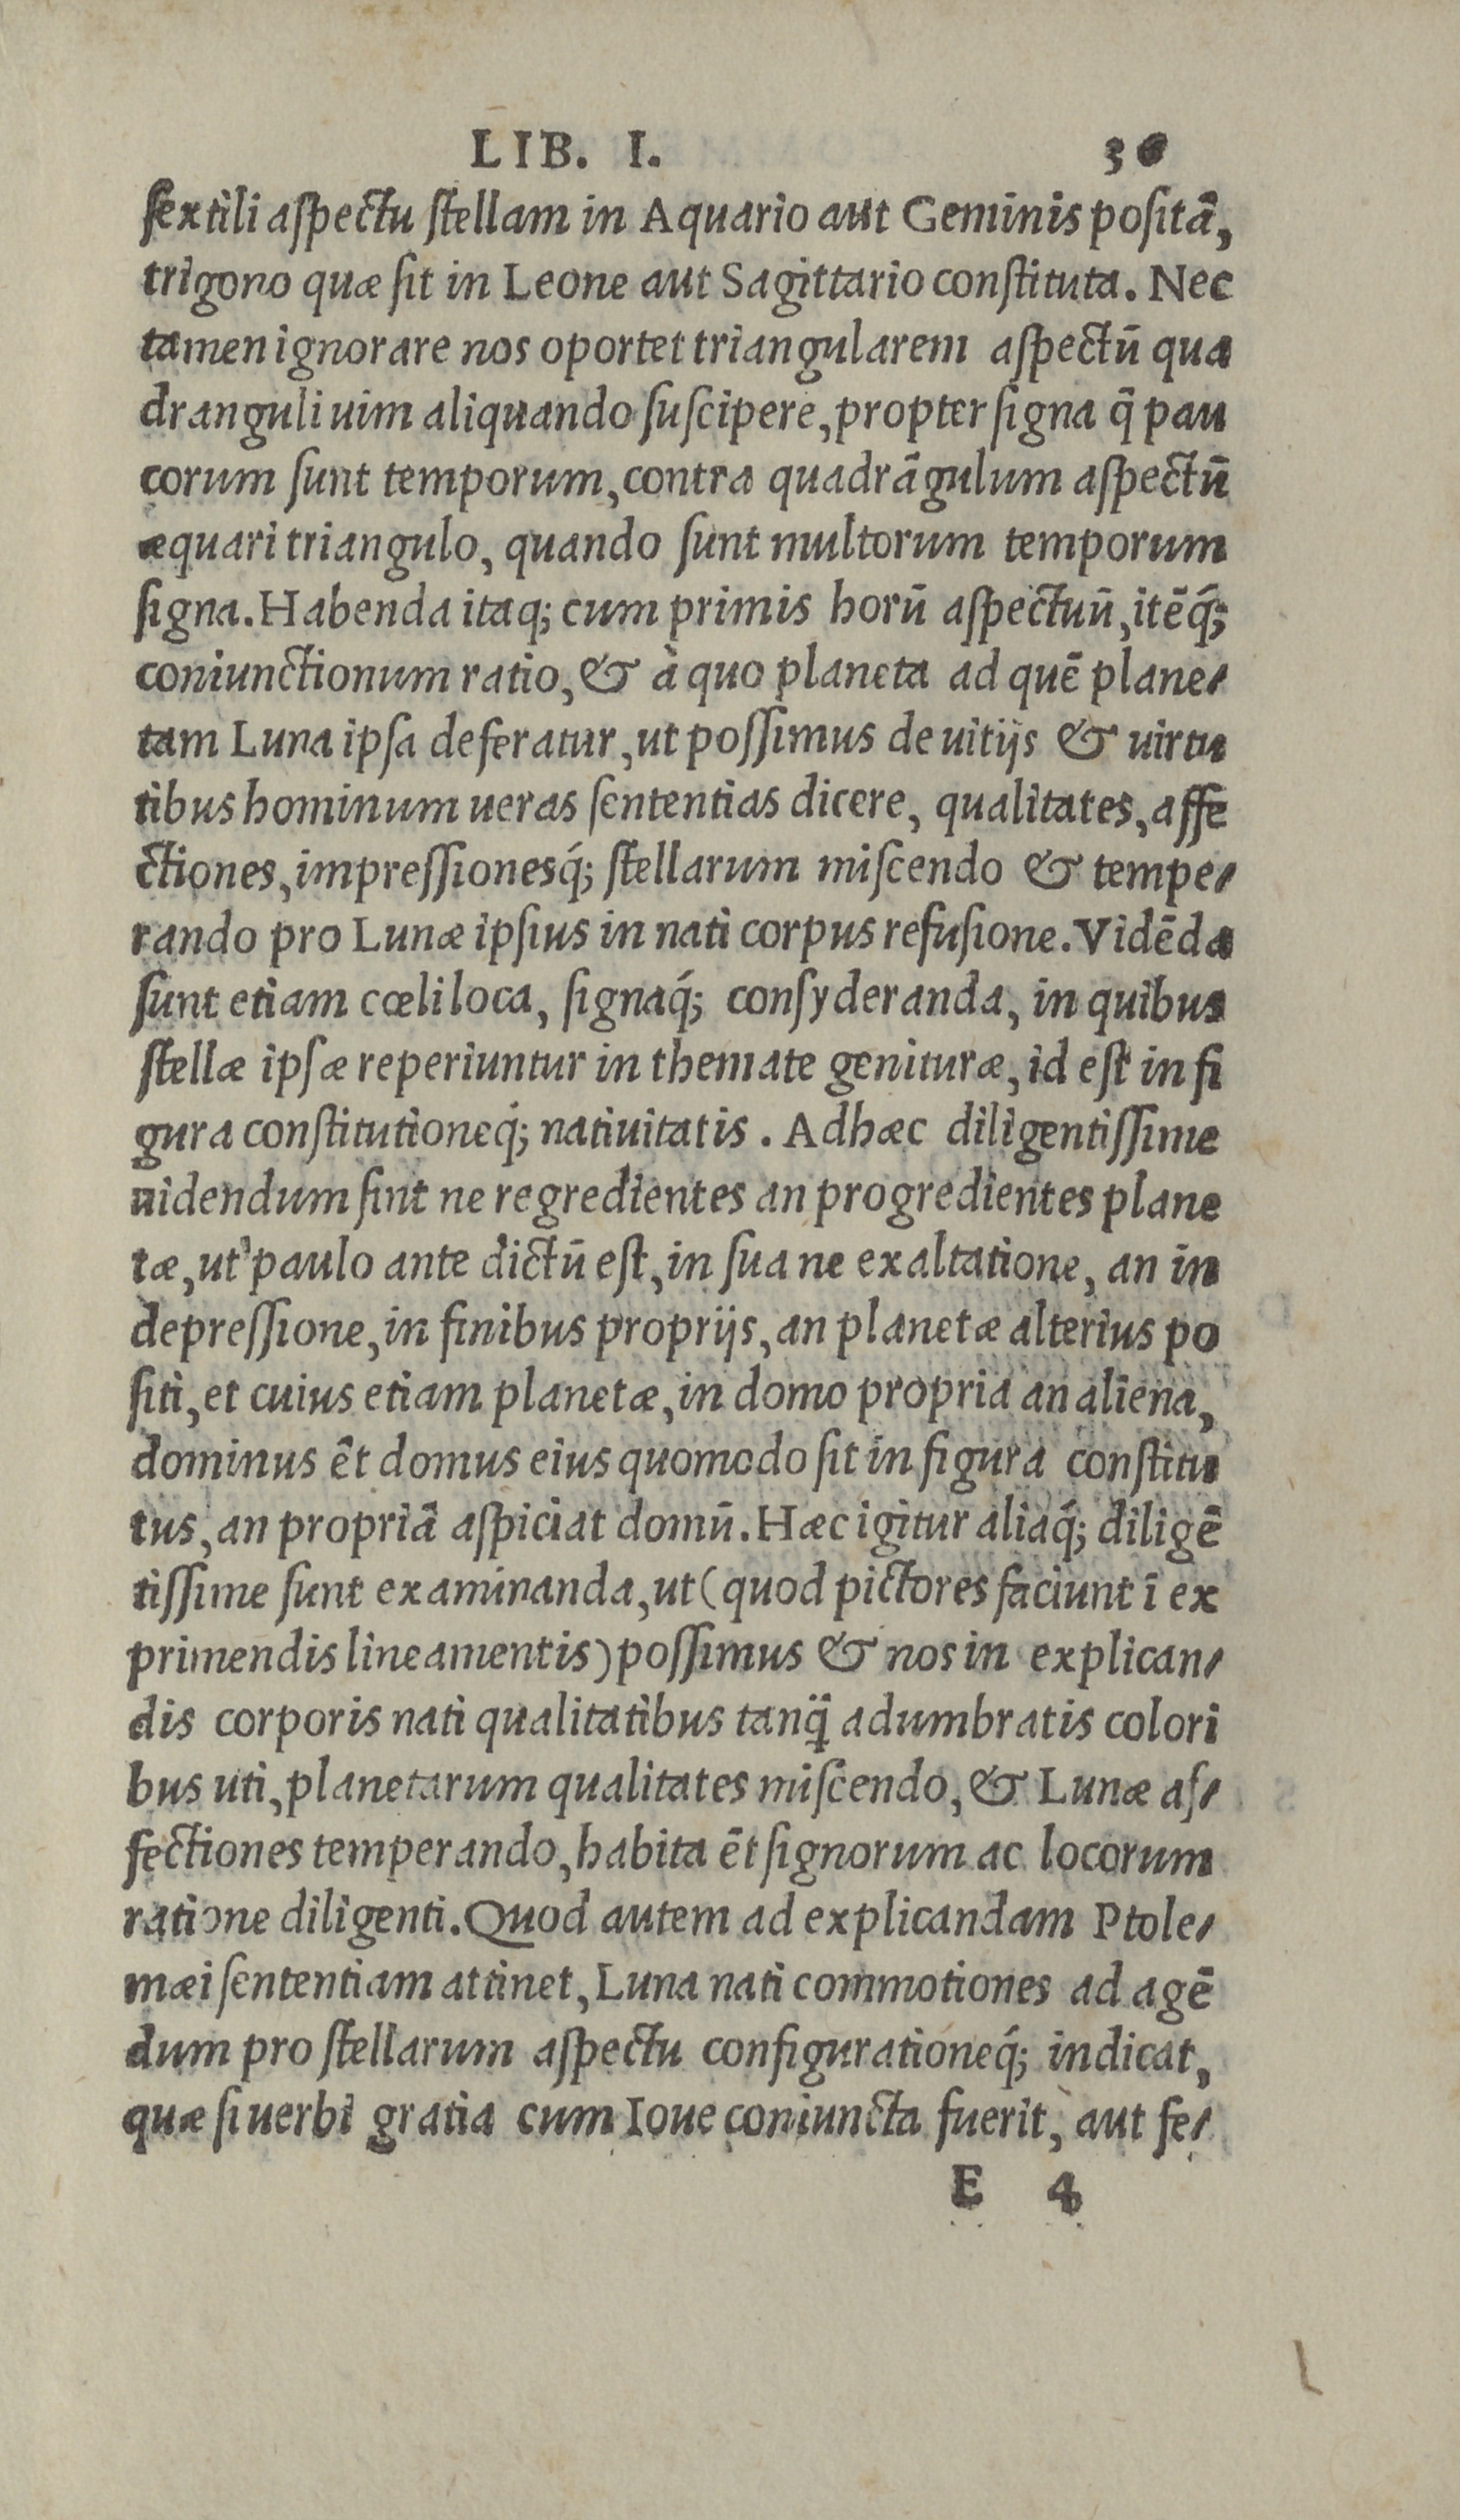 LIB. I. 36
ſextili aſpectu ſtellam in Aquario aut Geminis poſitā,
trigono quæ ſit in Leone aut Sagittario conſtituta. Nec
tamen ignorare nos oportet triangularem aſpectū qua
dranguli uim aliquando ſuſcipere, propter ſigna q̄ pau
corum ſunt temporum, contra quadrāgulum aſpectū
æquari triangulo, quando ſunt multorum temporum
ſigna. Habenda itaq; cum primis horū aſpectuū, itēq́;
coniunctionum ratio, & à quo planeta ad quē plane-
tam Luna ipſa deferatur, ut poſſimus de uitijs & uirtu
tibus hominum ueras ſententias dicere, qualitates, affe
ctiones, impreſſionesq́; ſtellarum miſcendo & tempe-
rando pro Lunæ ipſius in nati corpus refuſione. Vidēda
ſunt etiam cœli loca, ſignaq́; conſyderanda, in quibus
ſtellæ ipſæ reperiuntur in themate genituræ, id eſt in fi
gura conſtitutioneq́; natiuitatis. Adhæc diligentiſſime
uidendum ſint ne regredientes an progredientes plane
tæ, ut paulo ante dictū eſt, in ſua ne exaltatione, an in
depreſſione, in finibus proprijs, an planetæ alterius po
ſiti, et cuius etiam planetæ, in domo propria an aliena,
dominus ēt domus eius quomodo ſit in figura conſtitu
tus, an propriā aſpiciat domū. Hæc igitur aliaq́; diligē
tiſſime ſunt examinanda, ut (quod pictores faciunt ī ex
primendis lineamentis) poſſimus & nos in explican-
dis corporis nati qualitatibus tanq̄ adumbratis colori
bus uti, planetarum qualitates miſcendo, & Lunæ aſ-
fectiones temperando, habita ēt ſignorum ac locorum
ratione diligenti. Quod autem ad explicandam Ptole-
mæi ſententiam attinet, Luna nati commotiones ad agē
dum pro ſtellarum aſpectu configurationeq́; indicat,
quæ ſi uerbi gratia cum Ioue coniuncta fuerit, aut ſe-
E 4